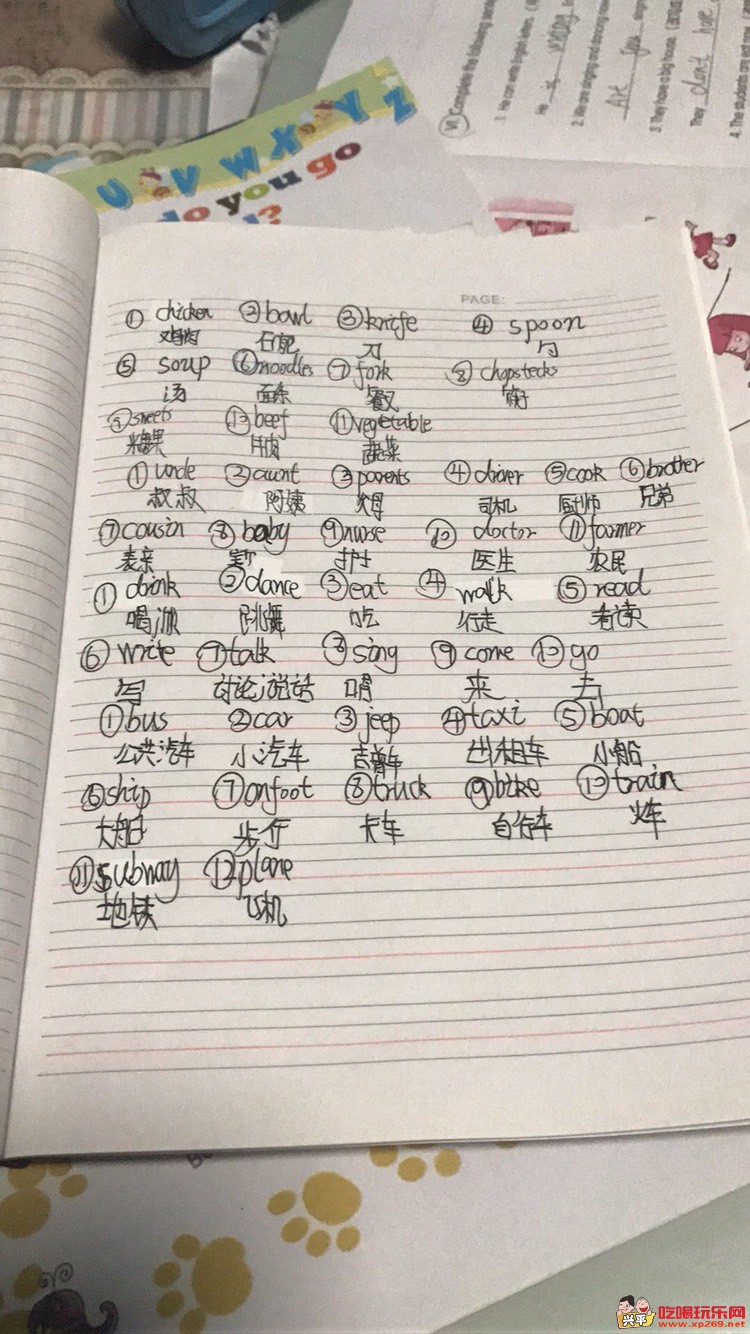 (VI) Complete the following
1. He can write English letters.
He is
2. We are singing and dancing now.
Are you
3. They have a big house.
They don't have
4. The students are
U V W X Y Z
do you go
PAGE:
① chicken ② bowl ③ knife ④ spoon
鸡肉 石宛 刀 勺
⑤ soup ⑥ noodles ⑦ fork ⑧ chopstecks
汤 面条 餐叉 筷
⑨ sweets ⑩ beef ⑪ vegetable
糖果 牛肉 蔬菜
① uncle ② aunt ③ parents ④ driver ⑤ cook ⑥ brother
叔叔 阿姨 父母 司机 厨师 兄弟
⑦ cousin ⑧ baby ⑨ nurse ⑩ doctor ⑪ farmer
表亲 宝宝 护士 医生 农民
① drink ② dance ③ eat ④ walk ⑤ read
喝 跳舞 吃 行走 看读
⑥ write ⑦ talk ⑧ sing ⑨ come ⑩ go
写 讨论说话 唱 来 去
① bus ② car ③ jeep ④ taxi ⑤ boat
公共汽车 小汽车 吉普车 出租车 小船
⑥ ship ⑦ onfoot ⑧ truck ⑨ bike ⑩ train
大船 步行 卡车 自行车 火车
⑪ subway ⑫ plane
地铁 飞机
兴平 吃喝玩乐网
www.xp269.net